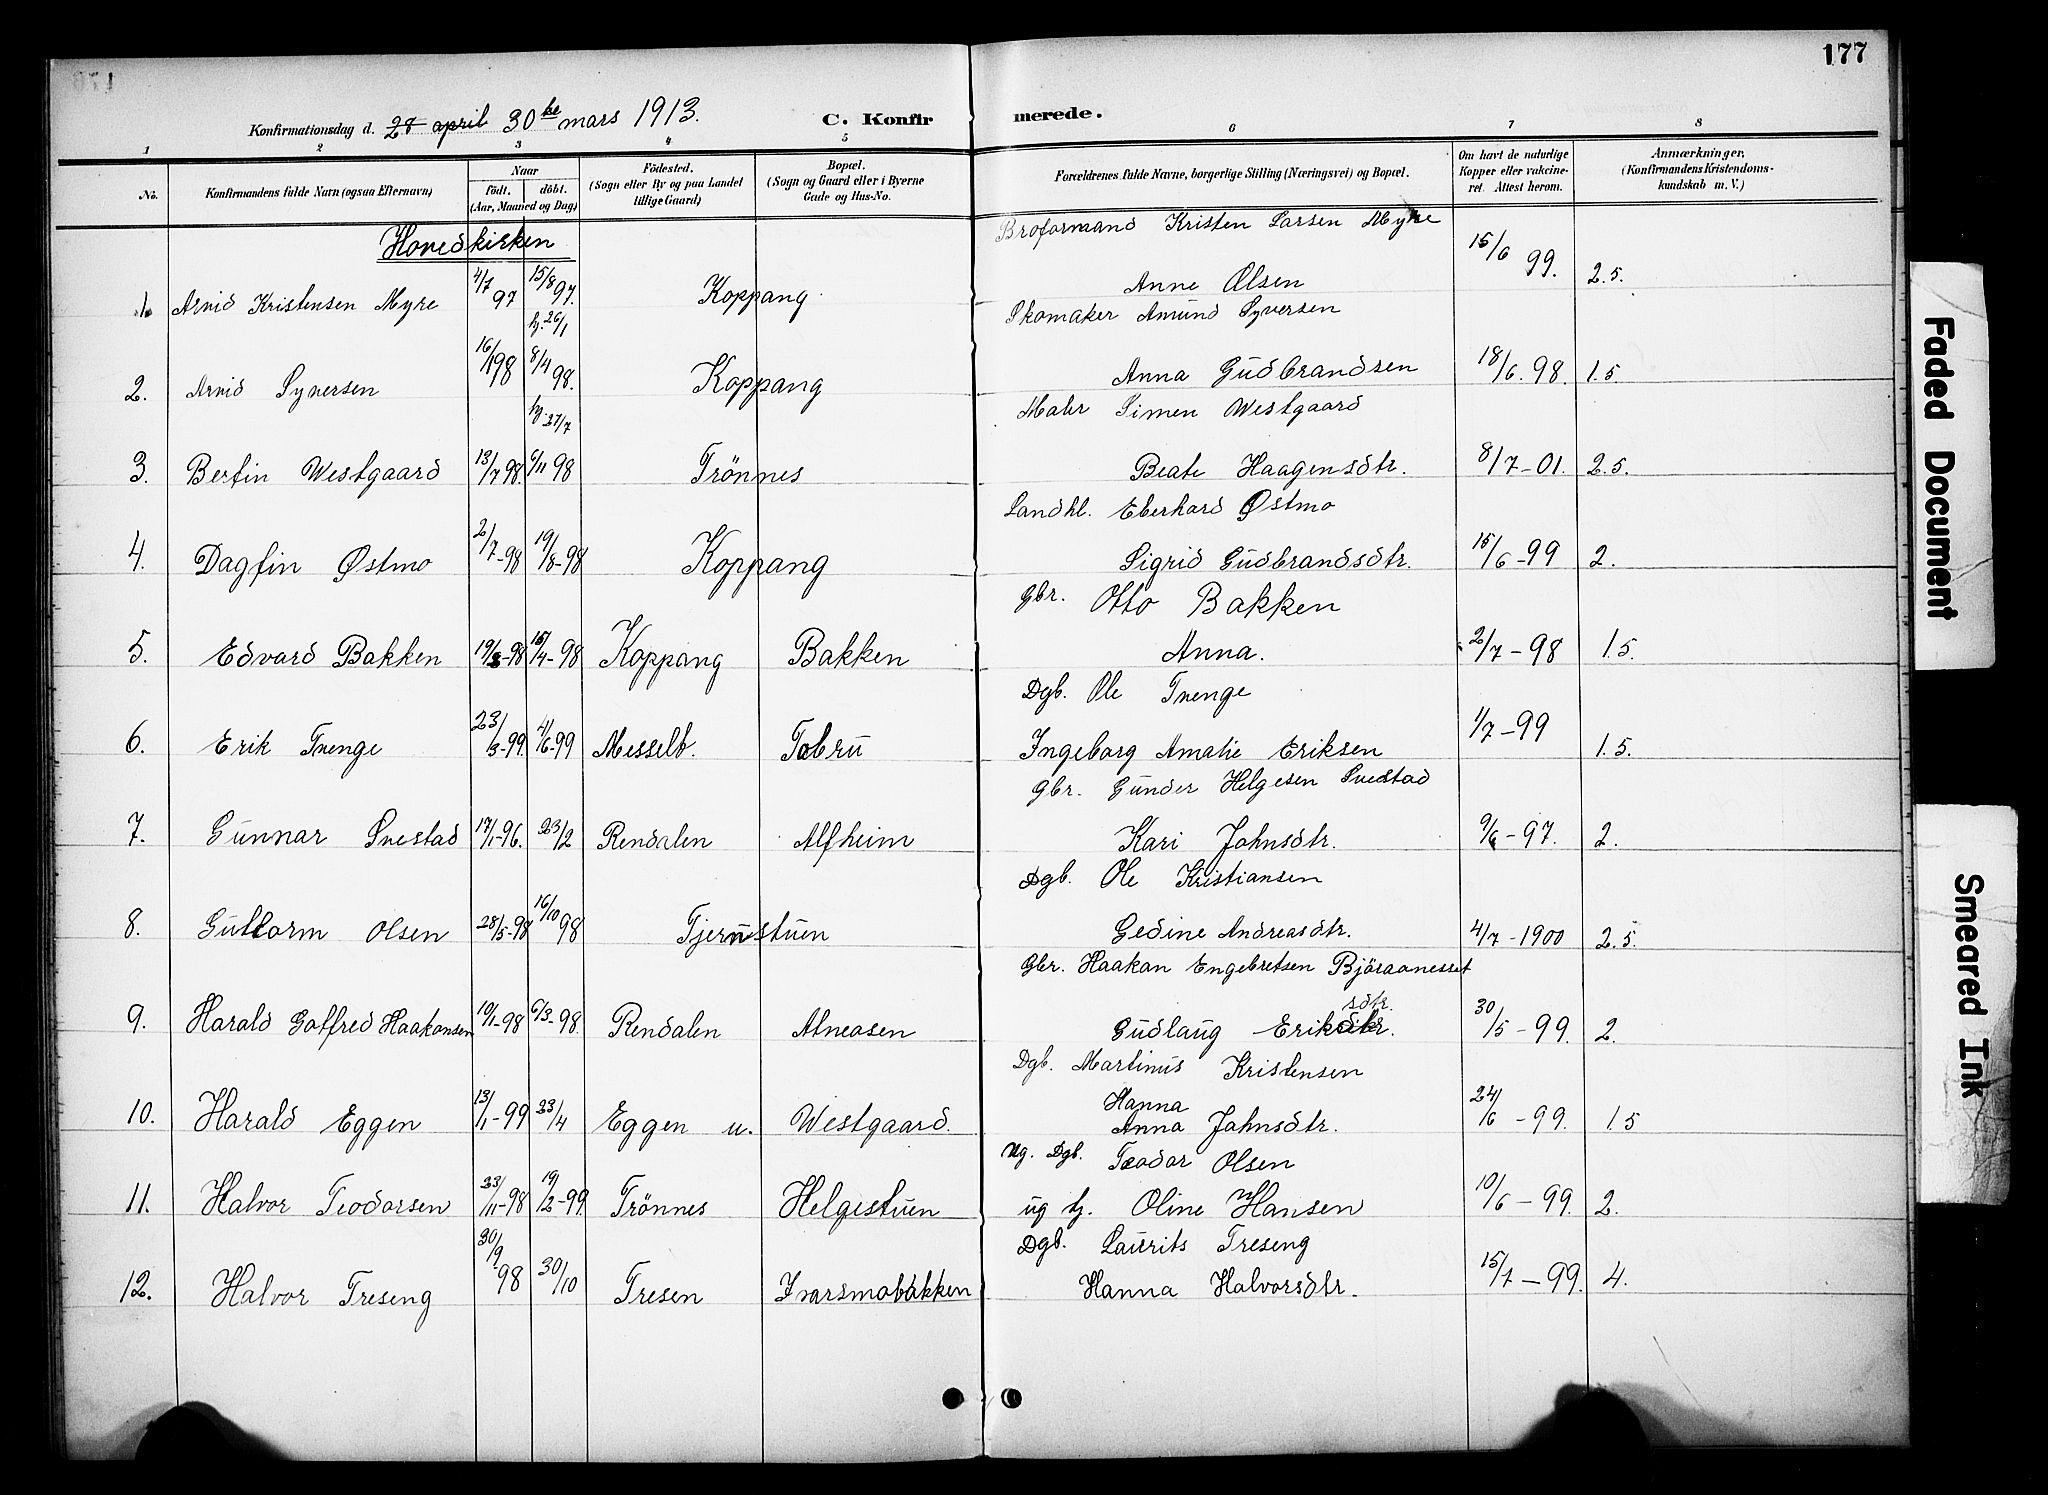 177
Konfirmationsdag d. 28 april 30te mars 1913. C. Konfirmerede.
1 2 3 4 5 6 7 8
No. Konfirmandens fulde Navn (ogsaa Efternavn) Naar født, døbt. (Aar, Maaned og Dag) Fødested. (Sogn eller By og paa Landet tillige Gaard) Bopæl. (Sogn og Gaard eller i Byerne Gade og Hus-No. Forældrenes fulde Navne, borgerlige Stilling (Næringsvei) og Bopæl. Om havt de naturlige Kopper eller vakcineret. Attest herom. Anmærkninger, (Konfirmandens Kristendomskundskab m. V.)
Hovedkirken
Broformand Kristen Larsen Myre
1. Arvid Kristensen Myre 4/7 97 15/8 97. Koppang Anne Olsen 15/6 99. 2.5.
hj. 26/1 Skomaker Amund Syversen
2. Arvid Syversen 16/1 98 8/4 98. Koppang Anna Gudbrandsen 18/6. 98. 1.5.
hj. 27/7 Maler Simen Westgaard
3. Bertin Westgaard 13/7 98. 6/11 98 Trönnes Beate Haagensdtr. 8/7-01. 2.5.
Landhl. Eberhard Østmo
4. Dagfin Østmo 2/7-98 19/8-98 Koppang Sigrid Gudbrandsdtr. 15/6-99 2.
Gbr. Otto Bakken
5. Edvard Bakken 19/3-98 /4-98 Koppang Bakken Anna. 2/7-98 1.5.
Dgb. Ole Trenge
6. Erik Trenge 23/3-99. 4/6-99 Messelt. Tobru Ingeborg Amalie Eriksen 1/7-99 1.5.
Gbr. Gunder Helgesen Svestad
7. Gunnar Svestad 17/1-96. 23/2 Rendalen Alfheim Kari Johnsdtr. 9/6-97. 2.
Dgb. Ole Kristiansen
8. Guttorm Olsen 28/5-98 16/10 98 Tjernstuen Gedine Andreasdtr. 4/7-1900 2.5.
Gbr. Haakan Engebretsen Björaanesset
9. Harald Gotfred Haakonsen 10/1-98 6/3-98. Rendalen Atneosen Gudlaug Eriksdtr. 30/5-99. 2.
Dgb. Martinus Kristensen
Hanna
10. Harald Eggen 13/1-99 23/4 Eggen u. Westgaard. Anna Johnsdtr. 24/6-99. 1.5
Ug. Dgb. Teodor Olsen
11. Halvor Teodorsen 23/11-98 19/2-99. Trönnes Helgestuen ug tj. Oline Hansen 10/6-99. 2.
Dgb. Laurits Treseng
12. Halvor Treseng 30/9 98 30/10 Tresen Ivarsmobakken Hanna Halvorsdtr. 15/7-99. 4.
Faded Document
Smeared Ink